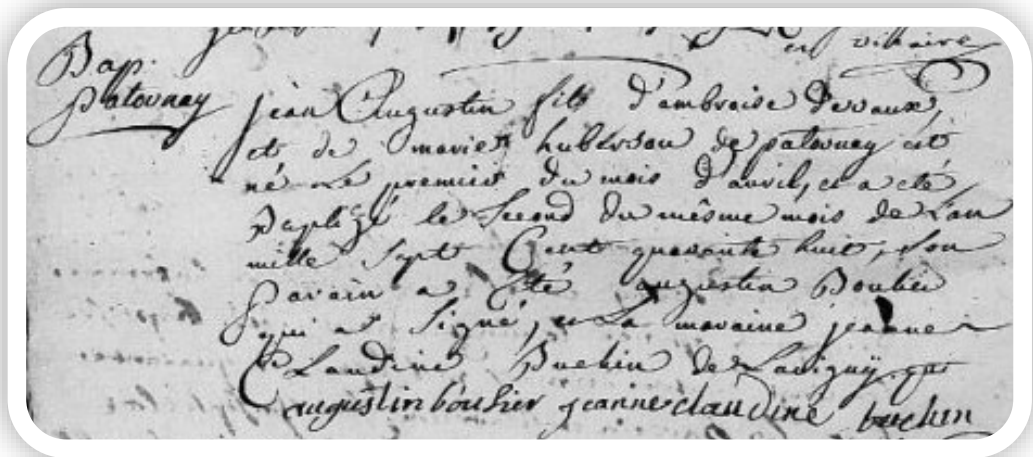 en villaire
Bap.
patornay
jean Augustin fils d'ambroise Devaux,
et de marie huberson de patornay est
né Le premier du mois d'avril, et a eté
Baptizé le Second du même mois de L'an
mille Sept Cent quarante huit, Son
parain a Eté augustin Bouhier
qui a Signé, et La maraine jeanne
Claudine Buchin de Lavigny qui
augustin bouhier jeanne claudine buchin